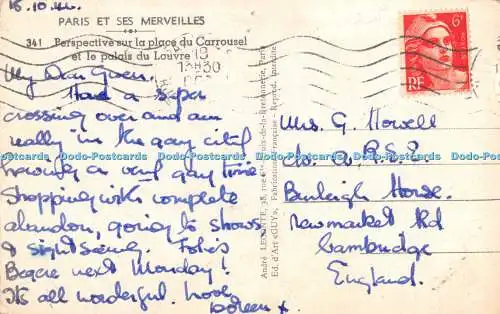 15.10.46.
PARIS ET SES MERVEILLES
341 Perspective sur la place du Carrousel
et le palais du Louvre
19
13H30
6F
RF
My Dear Gwen.
Had a super
crossing over and am
really in the gay city!
having a very gay time
Shopping with complete
abandon, going to shows
& sight seeing. Folies
Begere next Monday!
It's all wonderful. Love
Doreen x
Mrs. G. Howell
c/o. A.R.S.P.
Burleigh House.
Newmarket Rd
Cambridge
England.
André LECONTE, 38, rue Ste-Croix-de-la-Bretonnerie, Paris
Ed. d'Art «GUY», Fabrication Française - Reprod. Interdite
Dodo-Postcards Dodo-Postcards Dodo-Postcards Dodo-Postcards Dodo-Postcards